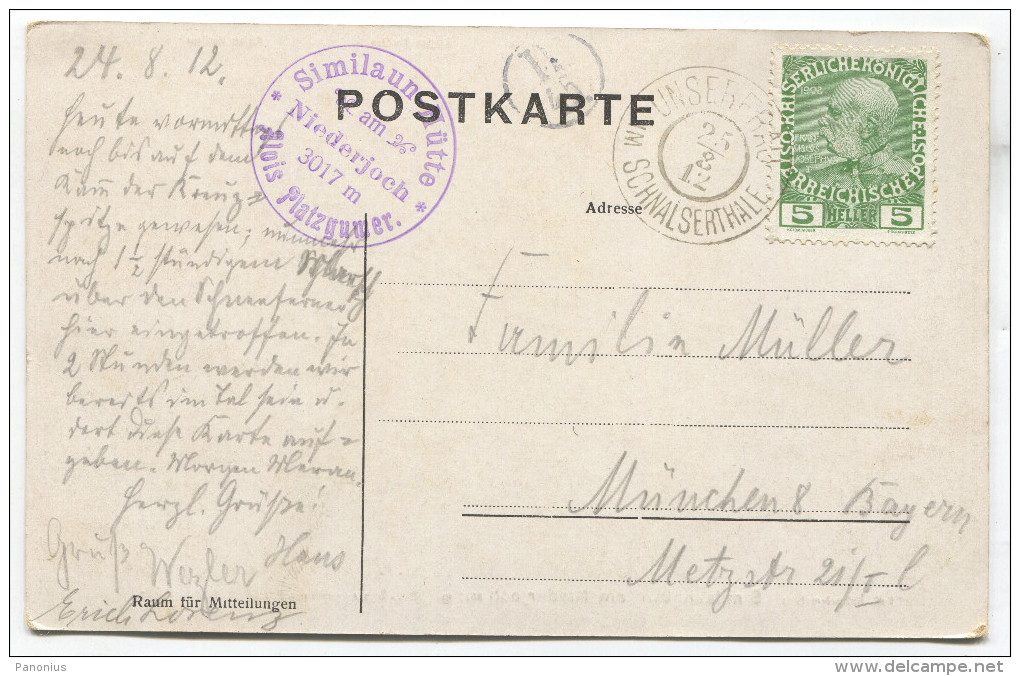 24. 8. 12.
Heute vormittag
noch bis auf dem
Kam der Kreuz=
spitze gewesen; nunmehr
nach 1 1/2 stündigem Marsch
über den Schneeferner
hier eingetroffen. In
2 Stunden werden wir
bereits im Tal sein u.
dort diese Karte auf=
geben. Morgen Meran.
Herzl. Grüsse!
Hans
Gruß
Erich Lorenz
Raum für Mitteilungen
* Similaun Hütte *
am
Niederjoch
3017 m
Alois Platzgumer.
POSTKARTE
UNSERFRAU
IM SCHNALSERTHALE
25
8
12
KAISERLICHE KÖNIGLICHE ÖSTERREICHISCHE POST
1908
5 HELLER 5
Adresse
Familie Müller
München 8 Bayern
Metzstr 21/I l
Panonius
www.delcampe.net